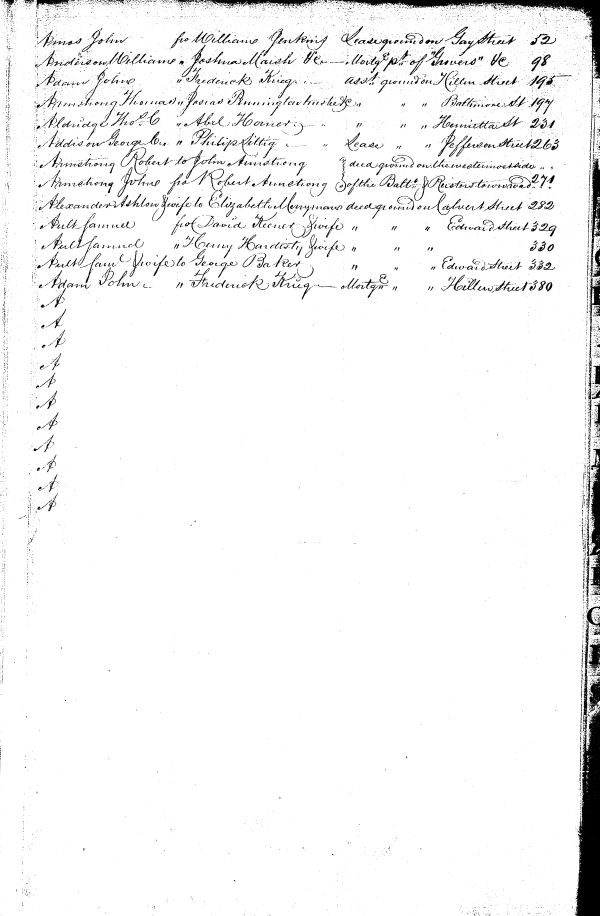 Amos John fro William Jenkins Lease ground on Gay Street 52
Anderson William " Joshua Marsh &c Mortge pt. of "Gowers" &c 98
Adam John " Frederick Krieg asst. ground on Hillen Street 195
Armstrong Thomas " Josias Pennington trustee &c " " " Baltimore St 197
Aldridge Thos. C " Abel Horner " " " Henrietta St 231
Addison George C. " Philip Littig " Lease " " Jefferson Street 263
Armstrong Robert to John Armstrong deed ground on the western most side " "
Armstrong John fro Robert Armstrong of the Balto. & Reisterstown road 271
Alexander Ashton & wife to Elizabeth Merryman deed ground on Calvert Street 282
Ault Samuel fro David Keener & wife " " " Edward Street 329
Ault Samuel " Henry Hardesty & wife " " " 330
Ault Saml & wife to George Baker " " " Edward Street 332
Adam John " Frederick Krieg Mortge " " Hillen Street 380
A
A
A
A
A
A
A
A
A
A
A